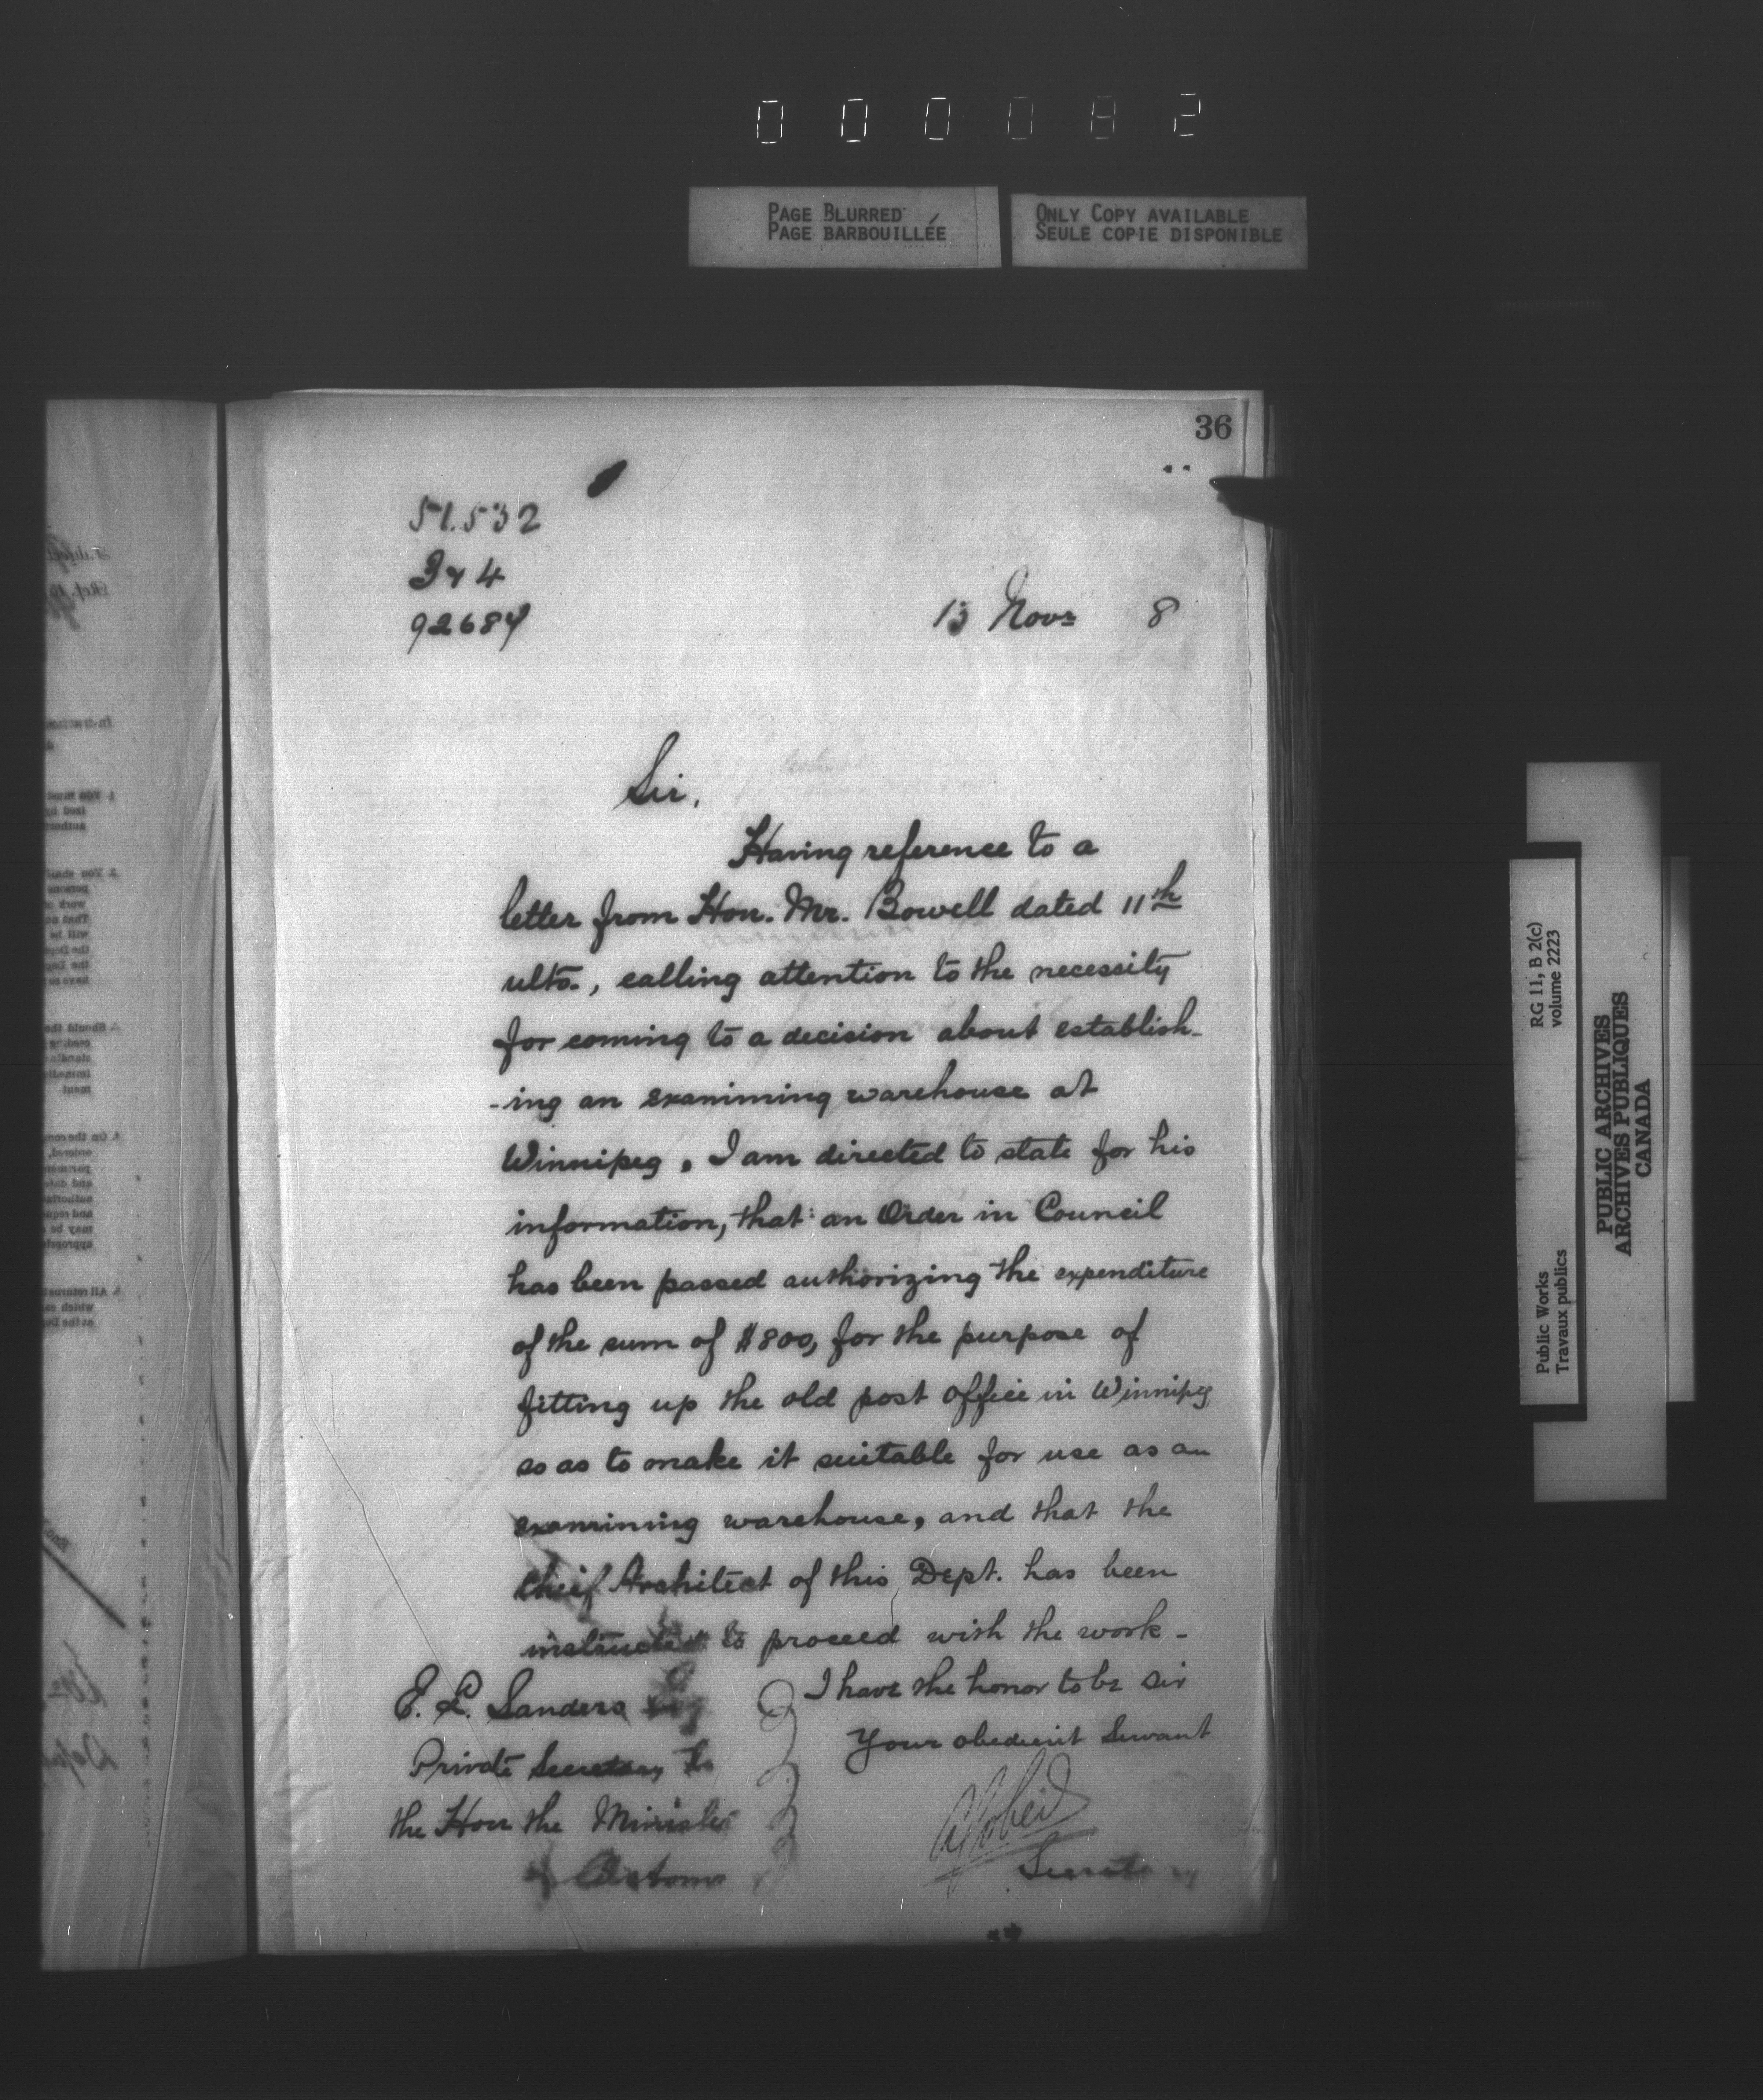 000082
PAGE BLURRED
PAGE BARBOUILLÉE
ONLY COPY AVAILABLE
SEULE COPIE DISPONIBLE
36
51.532
3 & 4
92684
13 Novr 8
Sir,
Having reference to a
letter from Hon. Mr. Bowell dated 11th
ulto., calling attention to the necessity
for coming to a decision about establish-
-ing an examining warehouse at
Winnipeg, I am directed to state for his
information, that an Order in Council
has been passed authorizing the expenditure
of the sum of $800, for the purpose of
fitting up the old post office in Winnipeg
so as to make it suitable for use as an
examining warehouse, and that the
Chief Architect of this Dept. has been
instructed to proceed with the work -
I have the honor to be sir
Your obedient Servant
Secretary
E. L. Sanders Esq
Private Secretary to
the Hon the Minister
of Customs
RG 11, B 2(c)
volume 2223
Public Works
Travaux publics
PUBLIC ARCHIVES
ARCHIVES PUBLIQUES
CANADA